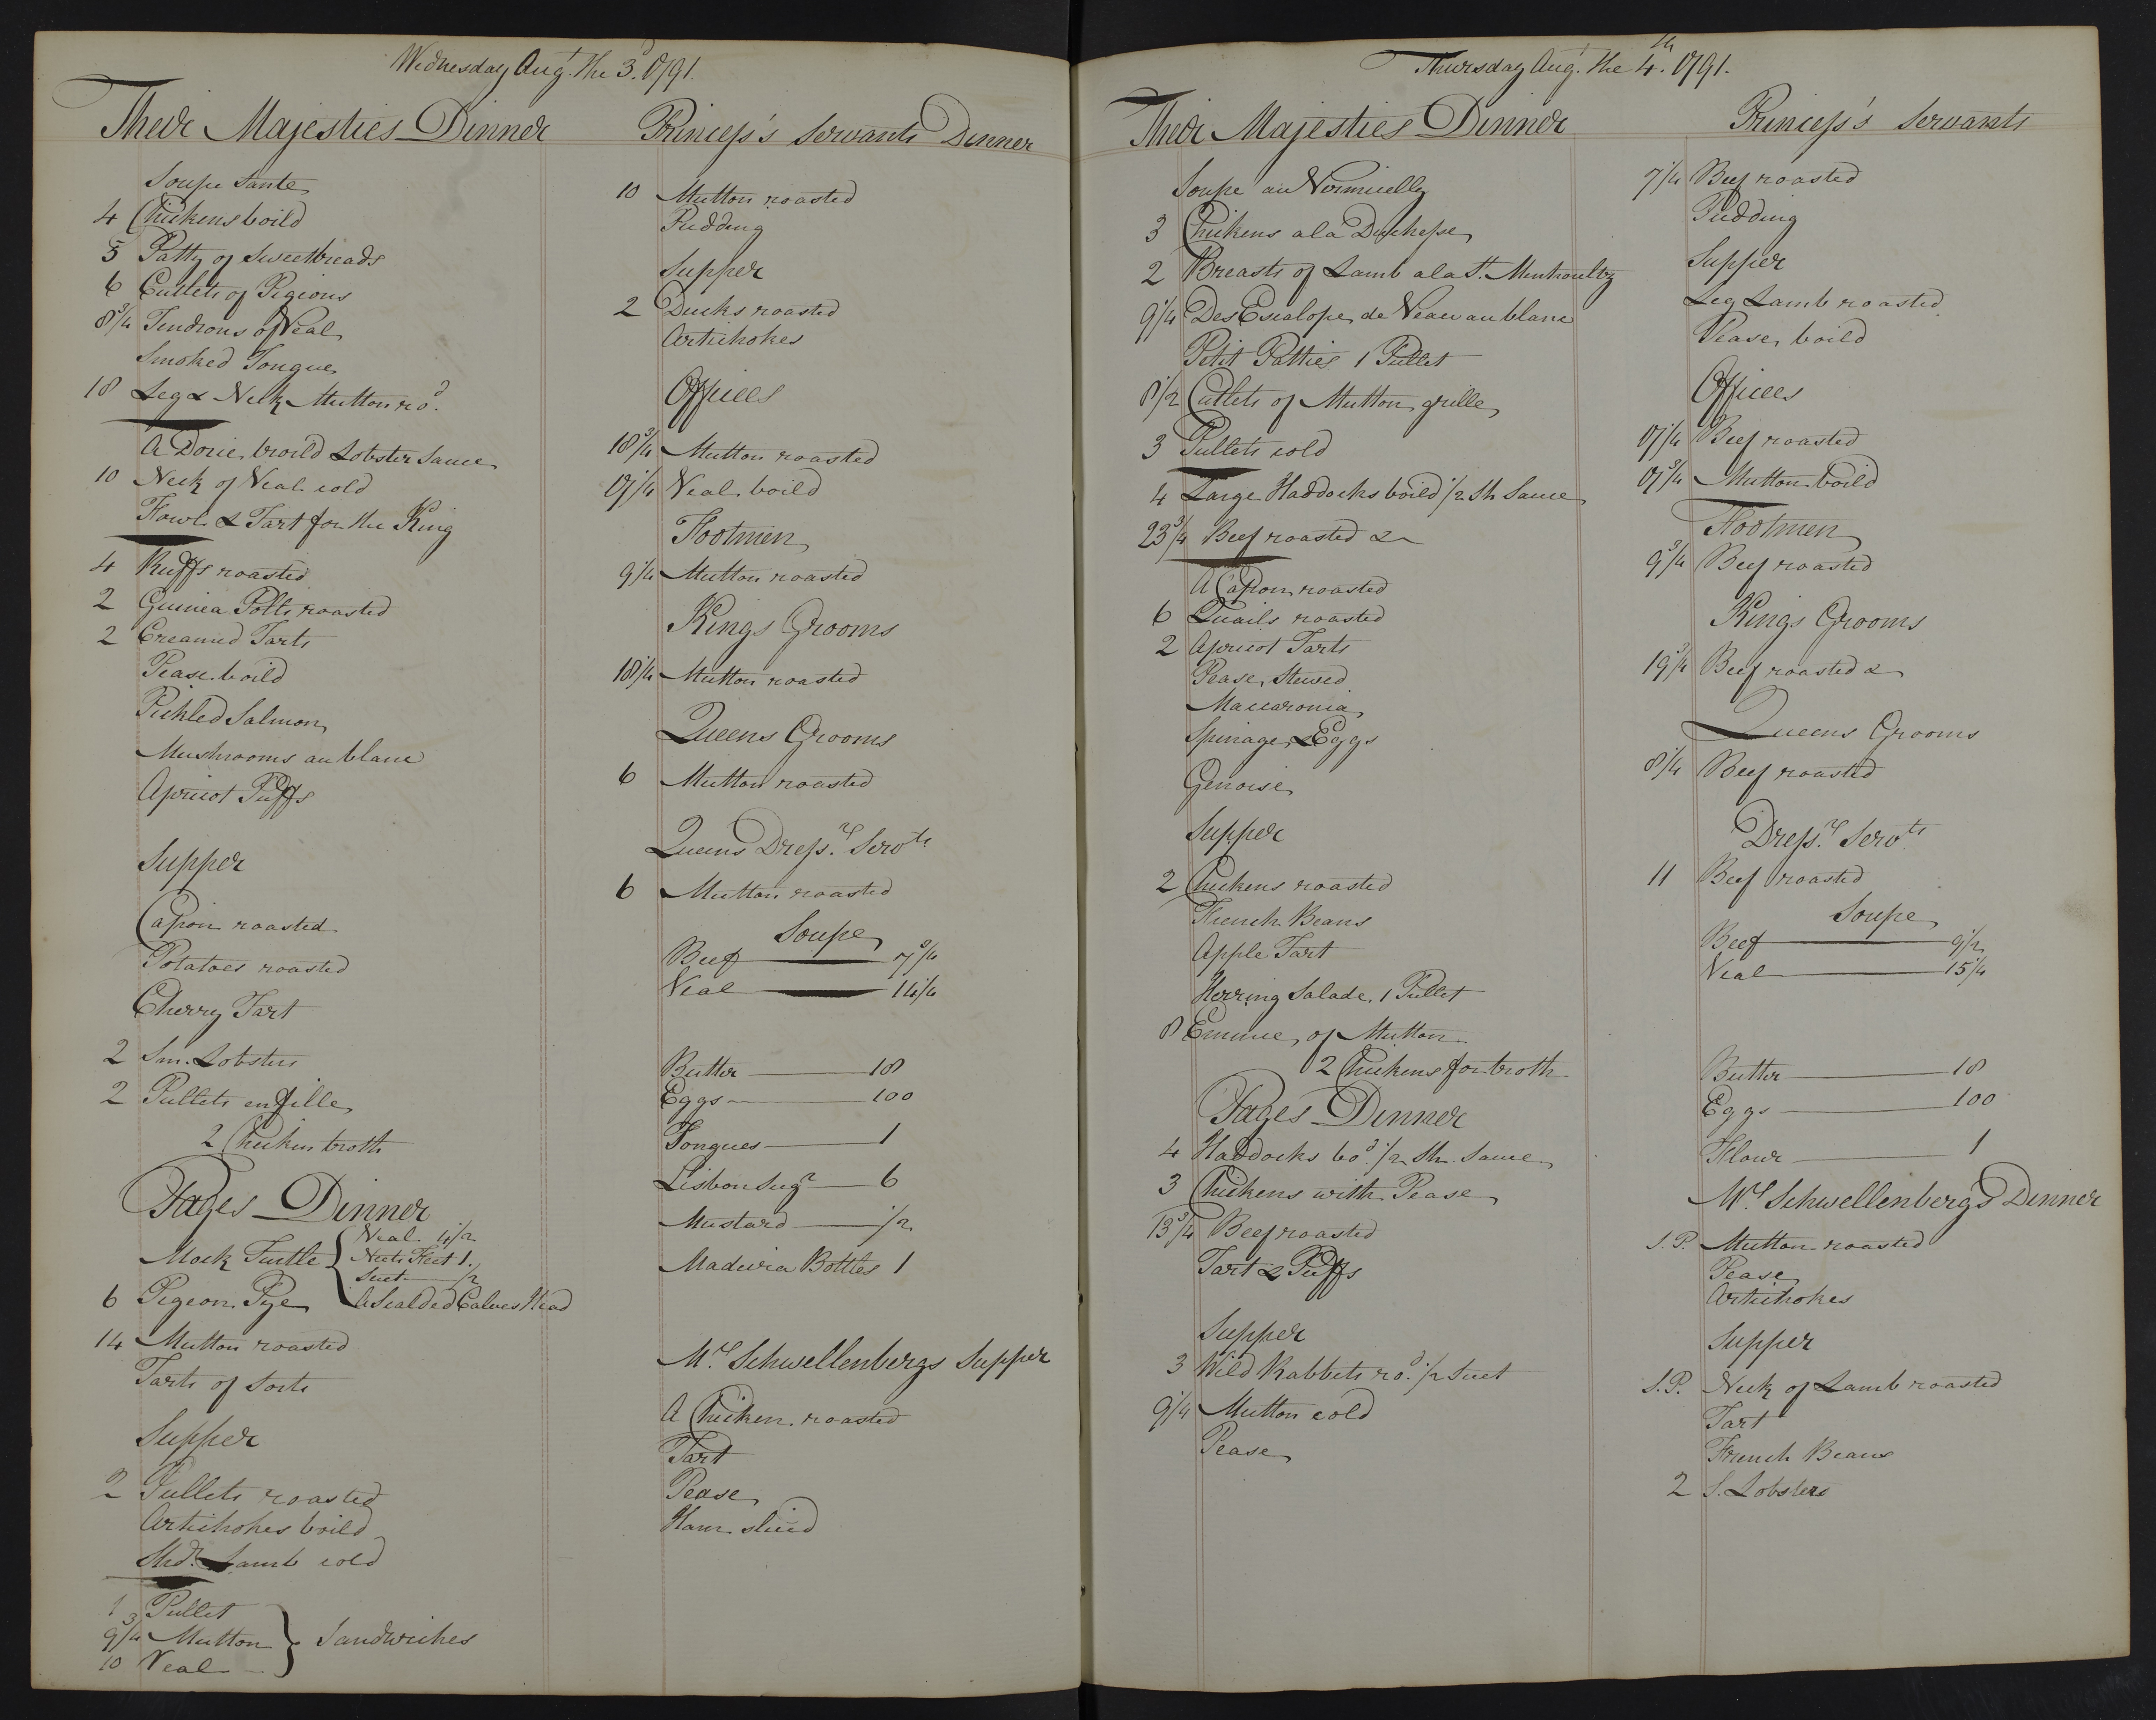 Wednesday Augt. the 3d. 1791.
Their Majesties Dinner
Soupe Sante
4 Chickens boild
5 Patty of Sweetbreads
6 Cutlets of Pigions
8 3/4 Tendrons of Veal
Smoked Tongue
18 Leg & Neck Mutton rod.
A Dorie broild Lobster Sauce
10 Neck of Veal cold
Fowl & Tart for the King
4 Ruffs roasted
2 Guinea Polts roasted
2 Creamed Tarts
Pease boild
Pickled Salmon
Mushrooms au blanc
Apricot Puffs
Supper
Capon roasted
Potatoes roasted
Cherry Tart
2 Sm. Lobsters
2 Pullets en fille
2 Chicken broth
Pages Dinner
Mock Turtle { Veal 4 1/2
Neets Feet 1.
Suet 1/2
A Scalded Calves Head
6 Pigeon Pye
14 Mutton roasted
Tarts of Sorts
Supper
2 Pullets roasted
Artichokes boild
Shdr. Lamb cold
1 Pullet
9 3/4 Mutton } Sandwiches
10 Veal
Princess's Servants Dinner
10 Mutton roasted
Pudding
Supper
2 Ducks roasted
Artichokes
Offices
18 3/4 Mutton roasted
17 1/4 Veal boild
Footmen
9 1/4 Mutton roasted
Kings Grooms
18 1/4 Mutton roasted
Queens Grooms
6 Mutton roasted
Queens Dressrs. Servts
6 Mutton roasted
Soupe
Beef 7 3/4
Veal 14 1/4
Butter 18
Eggs 100
Tongues 1
Lisbon Sugr 6
Mustard 1/2
Madeira Bottles 1
Mrs Schwellenbergs Supper
A Chicken roasted
Tart
Pease
Ham sliced
Thursday Augt. the 4th. 1791.
Their Majesties Dinner
Soupe au Vermicelly
3 Chickens a la Duchesse
2 Breasts of Lamb a la St. Minhoultz
9 1/4 Des Escalope de Veau au blanc
Petit Patties 1 Pullet
8 1/2 Cutlets of Mutton grille
3 Pullets cold
4 Large Haddocks boild 1/2 Sh Sauce
23 3/4 Beef roasted &
A Capon roasted
6 Quails roasted
2 Apricot Tarts
Pease Stewed
Maccaronia
Spinage & Eggs
Genoise
Supper
2 Chickens roasted
French Beans
Apple Tart
Herring Salade 1 Pullet
8 Emmie of Mutton
2 Chickens for broth
Pages Dinner
4 Haddocks bod. 1/2 Sh. Sauce
3 Chickens with Pease
13 3/4 Beef roasted
Tart & Puffs
Supper
3 Wild Rabbits rod. 1/2 Suet
9 1/4 Mutton cold
Pease
Princess's Servants
7 1/4 Beef roasted
Pudding
Supper
Leg Lamb roasted
Pease boild
Offices
17 1/4 Beef roasted
17 3/4 Mutton boild
Footmen
9 3/4 Beef roasted
Kings Grooms
19 3/4 Beef roasted &
Queens Grooms
8 1/4 Beef roasted
Dressrs. Servts
11 Beef roasted
Soupe
Beef 9 1/2
Veal 15 1/4
Butter 18
Eggs 100
Flour 1
Mrs Schwellenberg's Dinner
S.P. Mutton roasted
Pease
Artichokes
Supper
S.P. Neck of Lamb roasted
Tart
French Beans
2 S. Lobsters